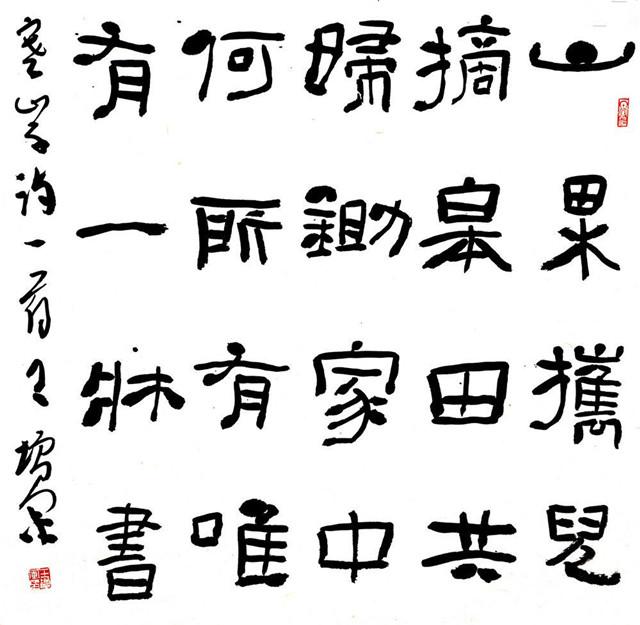 山果攜兒
摘皋田共
婦鋤家中
何所有唯
有一牀書
寒山子詩一首王